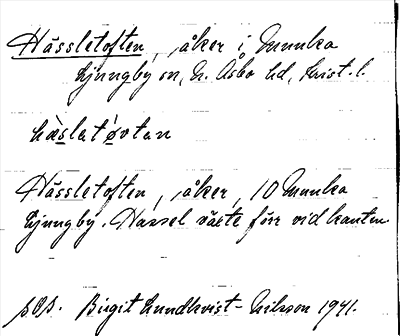 Hässletoften, åker i Munka
Ljungby sn, N. Åsbo hd, Krist. l.
hæ̀slatòvtan
Hässletoften, åker, 10 Munka
Ljungby. Hassel växte förr vid kanten.
Birgit Lundkvist-Nilsson 1941.